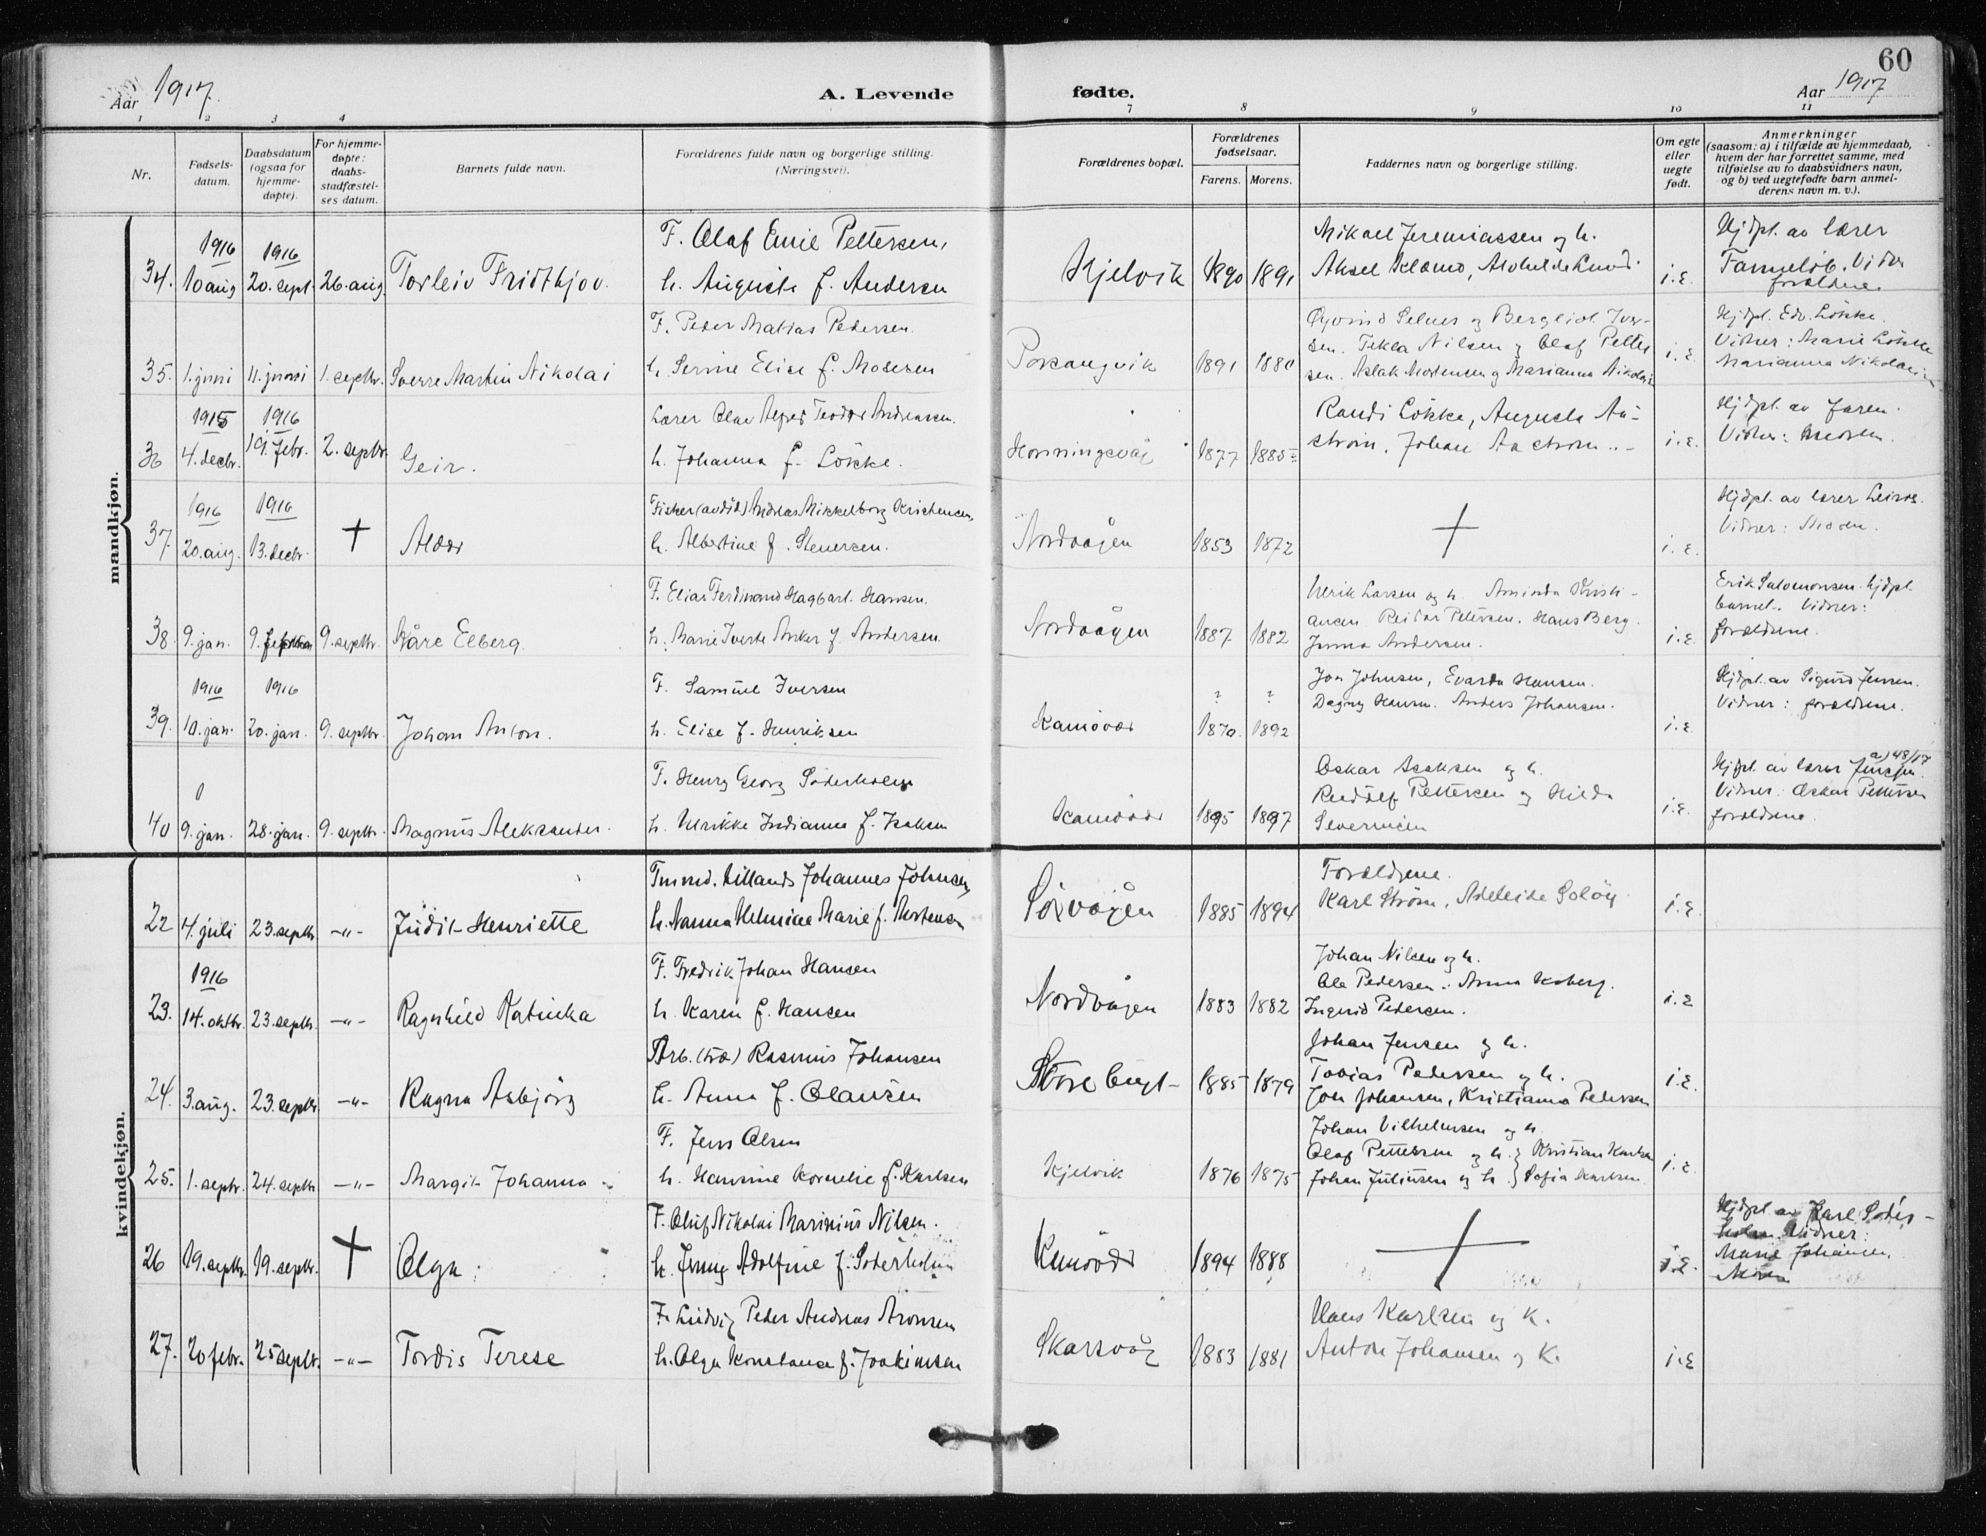 60
Aar 1917.
A. Levende fødte.
Aar 1917
1 2 3 4 7 8 9 10 11
Nr.
Fødsels-
datum.
Daabsdatum
(ogsaa for
hjemme-
døpte).
For hjemme-
døpte:
daabs-
stadfæstel-
ses datum.
Barnets fulde navn.
Forældrenes fulde navn og borgerlige stilling.
(Næringsvei).
Forældrenes bopæl.
Forældrenes
fødselsaar.
Farens. Morens.
Faddernes navn og borgerlige stilling.
Om egte
eller
uegte
født.
Anmerkninger
(saasom: a) i tilfælde av hjemmedaab,
hvem der har forrettet samme, med
tilføielse av to daabsvidners navn,
og b) ved uegtefødte barn anmel-
derens navn m. v.).
mandkjøn.
1916 1916 F. Olaf Emil Pettersen, Mikael Jeremiassen og h. Hjdpt. av lærer
34. 10 aug 20. sept. 26. aug. Torleiv Fridthjov. h. Augusta f. Andersen Kjelvik 1890 1891 Aksel Klæmo, i.E. Vidner
forældrene
F. Peder Matias Pedersen. Øyvind Selnes og Bergliot Iver- Hjdpt. Edv. Løkke.
35. 1. juni 11. juni 1. septbr. Sverre Martin Nikolai h. Serine Elise f. Modersen Porsangvik 1891 1880 sen. Tekla Nilsen og Olaf Petter i.E. Vidner: Marie Løkke
sen. Aslak Mortensen og Marianna Nikolai Marianna Nikolaisen
1915 1916 Lærer Olav Alfred Teodor Andreassen. Randi Løkke, Augusta Aa- Hjdpt. av faren.
36 4. decbr. 19. febr. 2. septbr. Geir. h. Johanna f. Løkke. Honningsvåg 1877 1885 strøm, Johan Aastrøm. i.E. Vidner: Moren.
1916 1916 Fisker (avdød) Andreas Mikkelborg Kristensen, Hjdpt. av lærer
37. 20. aug. 13. decbr. † Aldor h. Albertine f. Stenersen. Nordvågen 1853 1872 + i.E. Vidner: Moren.
F. Elias Ferdinand Hagbart Hansen. Ulrik Larsen og h. Aminda Kristi- Erik Salomonsen hjdpt.
38. 9. jan. 9. 9. septbr. Kåre Elberg h. Marie Iverte Anker f. Andersen. Nordvågen 1887 1882 ansen Reidar Petersen. Hans Berg. i.E. barnet. Vidner:
Jenna Andersen. forældrene.
1916 1916 F. Samuel Iversen ? ? Jon Johnsen, Evarda Hansen. Hjdpt. av Sigurd Jensen.
39. 10. jan. 20. jan. 9. septbr. Johan Anton. h. Elise f. Henriksen Kamøvær 1870. 1892 Dagny Hansen. Anders Johansen. i.E. Vidner: forældrene.
F. Henry Georg Søderholm Oskar Isaksen og h. Hjdpt. av lærer Jensen. a) 48/17
40 9. jan. 28. jan. 9. septbr. Magnus Aleksander. h. Ulrikke Indianna f. Isaksen Kamøvær 1895 1897 Rudolf Pettersen og Hilda i.E. Vidner: Oskar Pettersen
Severinsen forældrene.
kvindekjøn.
Tømmerm. Johannes Johnsen Forældrene.
22 4. juli 23. septbr. –"– Judit Henriette h. Nanna Helmine Marie f. Mortensen Sørvågen 1885 1894 Karl Strøm, Adeleide Soløy i.E.
1916 F. Fredrik Johan Hansen Johan Nilsen og h.
23. 14. oktbr. 23. septbr. –"– Ragnhild Katinka h. Karen f. Hansen Nordvågen 1883 1882 Ole Pedersen. Anna i.E
Ingrid Pedersen.
Arb. Rasmus Johansen Johan Jensen og h.
24. 3. aug. 23. septbr. –"– Ragna Asbjørg h. Anna f. Clausen Storebugt 1885 1879 Tobias Pedersen og h. i.E.
Jon Johansen, Kristianna Petersen
F. Jens Olsen Johan Vilhelmsen og h.
25. 1. septbr. 24. septbr. –"– Margit Johanna h. Hansine Kornelie f. Karlsen Kjelvik 1876 1875 Olaf Pettersen og h. } Kristian Karlsen i.E.
Johan Juliussen og h. } Sofia Karlsen
F. Oluf Nikolai Marinius Nilsen. Hjdpt. av Karl Søder-
26 19. septbr. 19. septbr. † Olga h. Jenny Adolfine f. Søderholm Kamøvær 1894 1888 + i.E. holm. Vidner:
Marie Johansen,
Moren
F. Ludvig Peder Andreas Aronsen Hans Karlsen og K.
27. 20 febr. 25 septbr. –"– Tordis Terese h. Olga Konstanse f. Joakimsen Skarsvåg 1883 1881 Anton Johansen og K. i.E